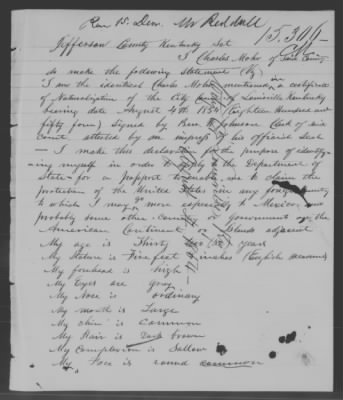 15,306
Jefferson County Kentucky Sct
I Charles Mohr of said County
do make the following Statement (Viz)
I am the identical Charles Mohr mentioned in a certificate
of Naturalization of the City of Louisville Kentucky
bearing date August 4th 1854 (Eighteen Hundred and
fifty four) Signed by Clerk of said
court attested by an impress of his official Seal
I make this declaration for the purpose of identify-
ing myself in order to apply to the Department of
State for a passport to enable me to claim the
protection of the United States in any foreign country
to which I may go more especially to Mexico and
probably some other country or Government on the
American Continent or Islands adjacent
My age is Thirty years
My Stature is Five feet inches (English measure)
My forehead is high
My Eyes are gray
My Nose is ordinary
My mouth is Large
My chin is Common
My Hair is Dark brown
My Complexion is Sallow
My Face is round common